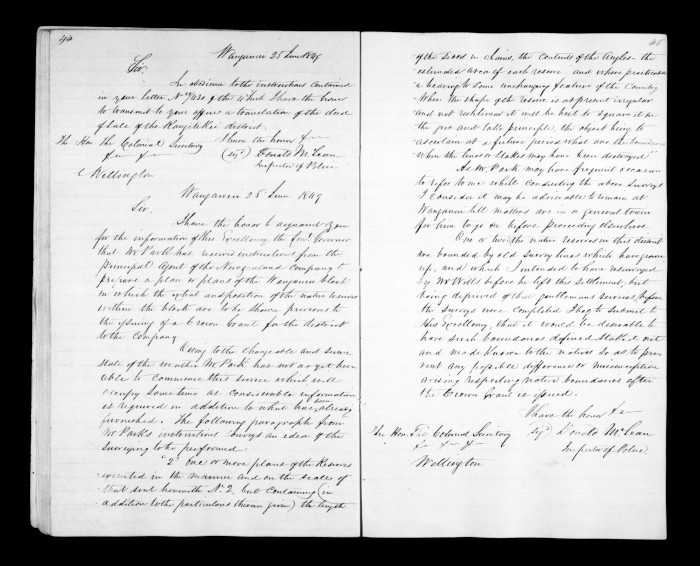 44
Wanganui 25 June 1849
Sir,
In obedience to the instructions contained
in your letter No of the I have the honor
to transmit to your office a translation of the deed
of Sale of the Rangitikei district
I have the honor &c
The Hon. the Colonial Secretary
(Sigd) Donald McLean
&c &c
Inspector of Police
Wellington
Wanganui 25 June 1849
Sir,
I have the honor to acquaint you
for the information of His Excellency the Lieut Governor
that Mr Park has received instructions from the
Principal Agent of the New Zealand Company to
prepare a plan or plans of the Wanganui block
in which the extent and position of the native reserves
within the block are to be shewn previous to
the issuing of a Crown Grant for the district
to the Company
Owing to the changeable and severe
state of the weather Mr Park has not as yet been
able to commence this service which will
occupy some time as considerable information
is required in addition to what has been already
furnished. The following paragraph from
Mr Park's instructions conveys an idea of the
Surveying to be performed.
"2d One or more plans of the Reserves
executed in the manner and on the scale of
that sent herewith No 2, but containing (in
addition to the particulars therein given) the length
45
of the Lines in chains, the contents of the Angles the
estimated area of each reserve and where practicable
a bearing to some unchanging feature of the Country
When the shape of the reserve is at present irregular
and not rectilinear it will be best to square it on
the give and take principle, the object being to
ascertain at a future period what are the boundaries
when the lines or stakes may have been destroyed"
As Mr Park may have frequent occasion
to refer to me whilst conducting the above surveys
I consider it may be advisable to remain at
Wanganui till matters are in a general train
for him to go on before proceeding elsewhere
One or two the native reserves in this district
are bounded by old Survey lines which have grown
up, and which I intended to have resurveyed
by Mr Wills before he left this settlement, but
being deprived of that gentlemans services before
the surveys were completed I beg to submit to
His Excellency, that it would be desirable to
have such boundaries defined staked out
and made known to the natives so as to prevent
any possible difference or misconception
arising respecting native boundaries after
the Crown Grant is issued.
I have the honor &c
The Hon. The Colonial Secretary
Sigd Donald McLean
&c &c &c
Inspector of Police
Wellington